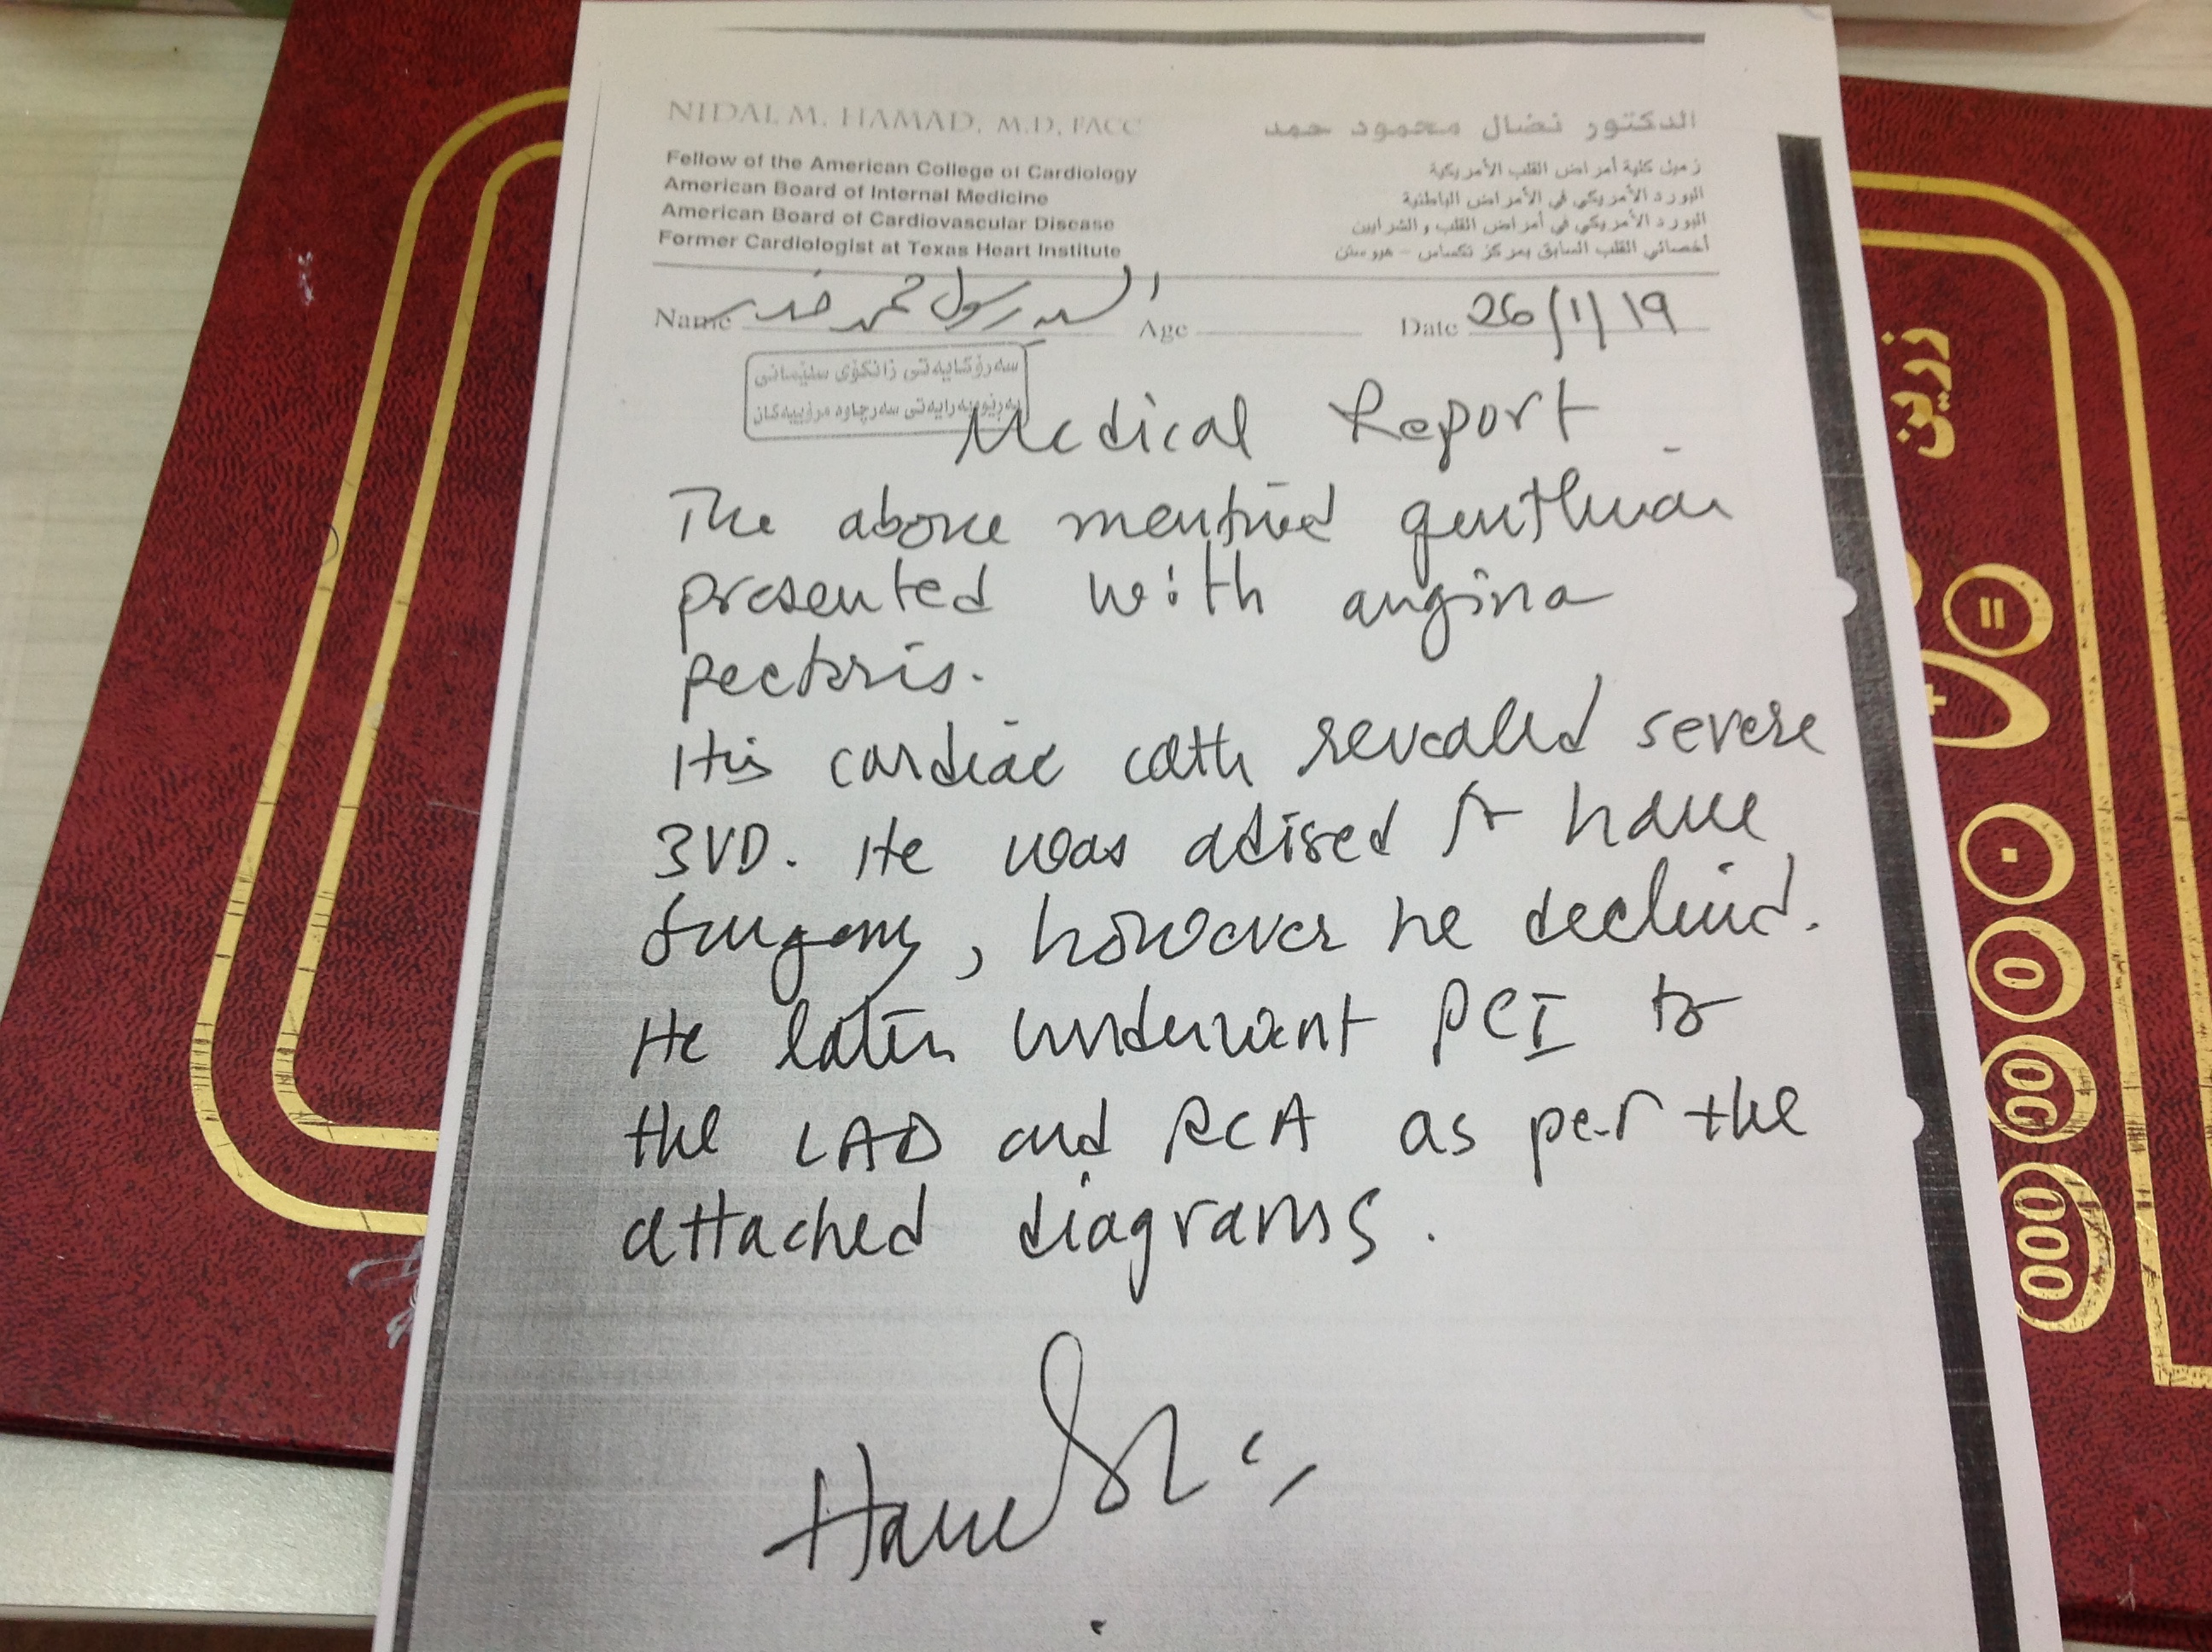 NIDAL M. HAMAD, M.D, FACC
الدكتور نضال محمود حمد
Fellow of the American College of Cardiology
زميل كلية أمراض القلب الأمريكية
American Board of Internal Medicine
البورد الأمريكي في الأمراض الباطنية
American Board of Cardiovascular Disease
البورد الأمريكي في أمراض القلب و الشرايين
Former Cardiologist at Texas Heart Institute
أخصائي القلب السابق بمركز تكساس - هيوستن
Name السيد رسول محمد خدر Age Date 26/1/19
سەرۆکایەتی زانکۆی سلێمانی
بەڕێوەبەرایەتی سەرچاوە مرۆییەکان
Medical Report
The above mentioned gentleman
presented with angina
pectoris.
His cardiac cath revealed severe
3VD. He was adised to have
Surgery, however he declined.
He later underwent PCI to
the LAD and RCA as per the
attached diagrams.
زرين
=
+
.
0
00
000